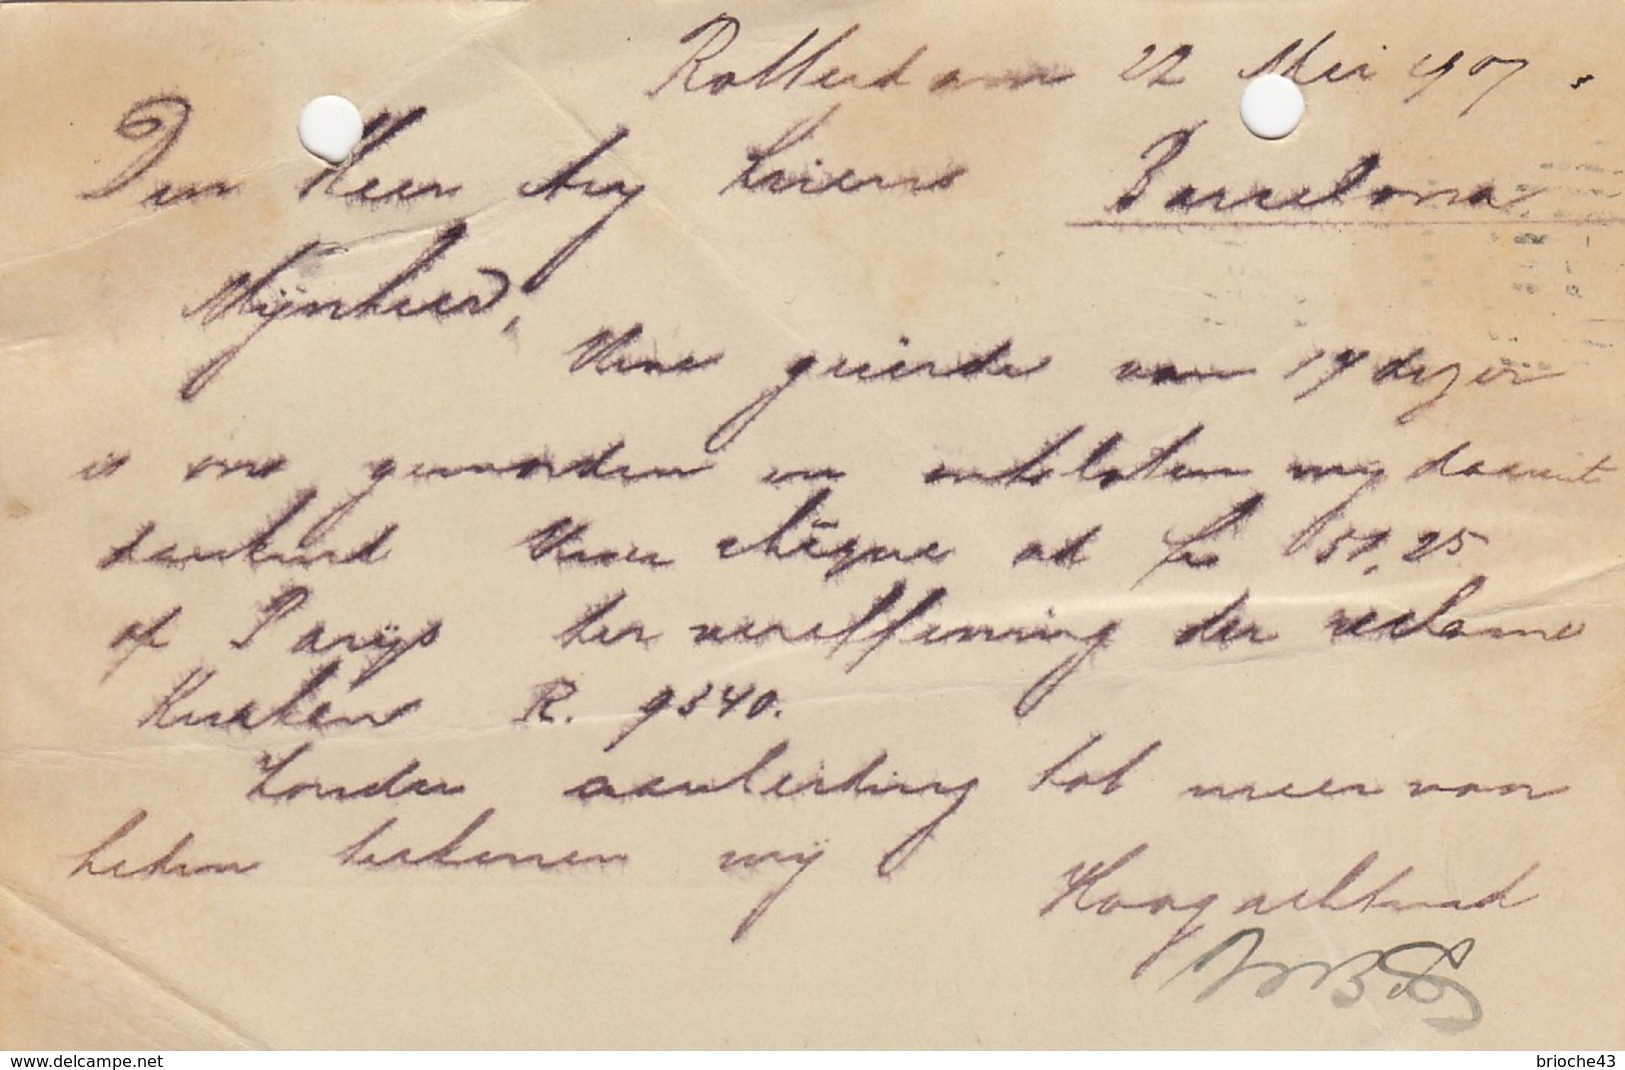 Rotterdam 22 Mei 1907.
Den Heer Ary Barcelona
Mijnheer,
Uwe geëerde van 19 dezer
is ons geworden en ontsloten wij daaruit
dankend Uwen chèque ad fr 51,25
op Parijs ter vereffening der reclame
Kurken R. 9340.
Zonder aanleiding tot meer van
heden teekenen wij
Hoogachtend
www.delcampe.net
brioche43